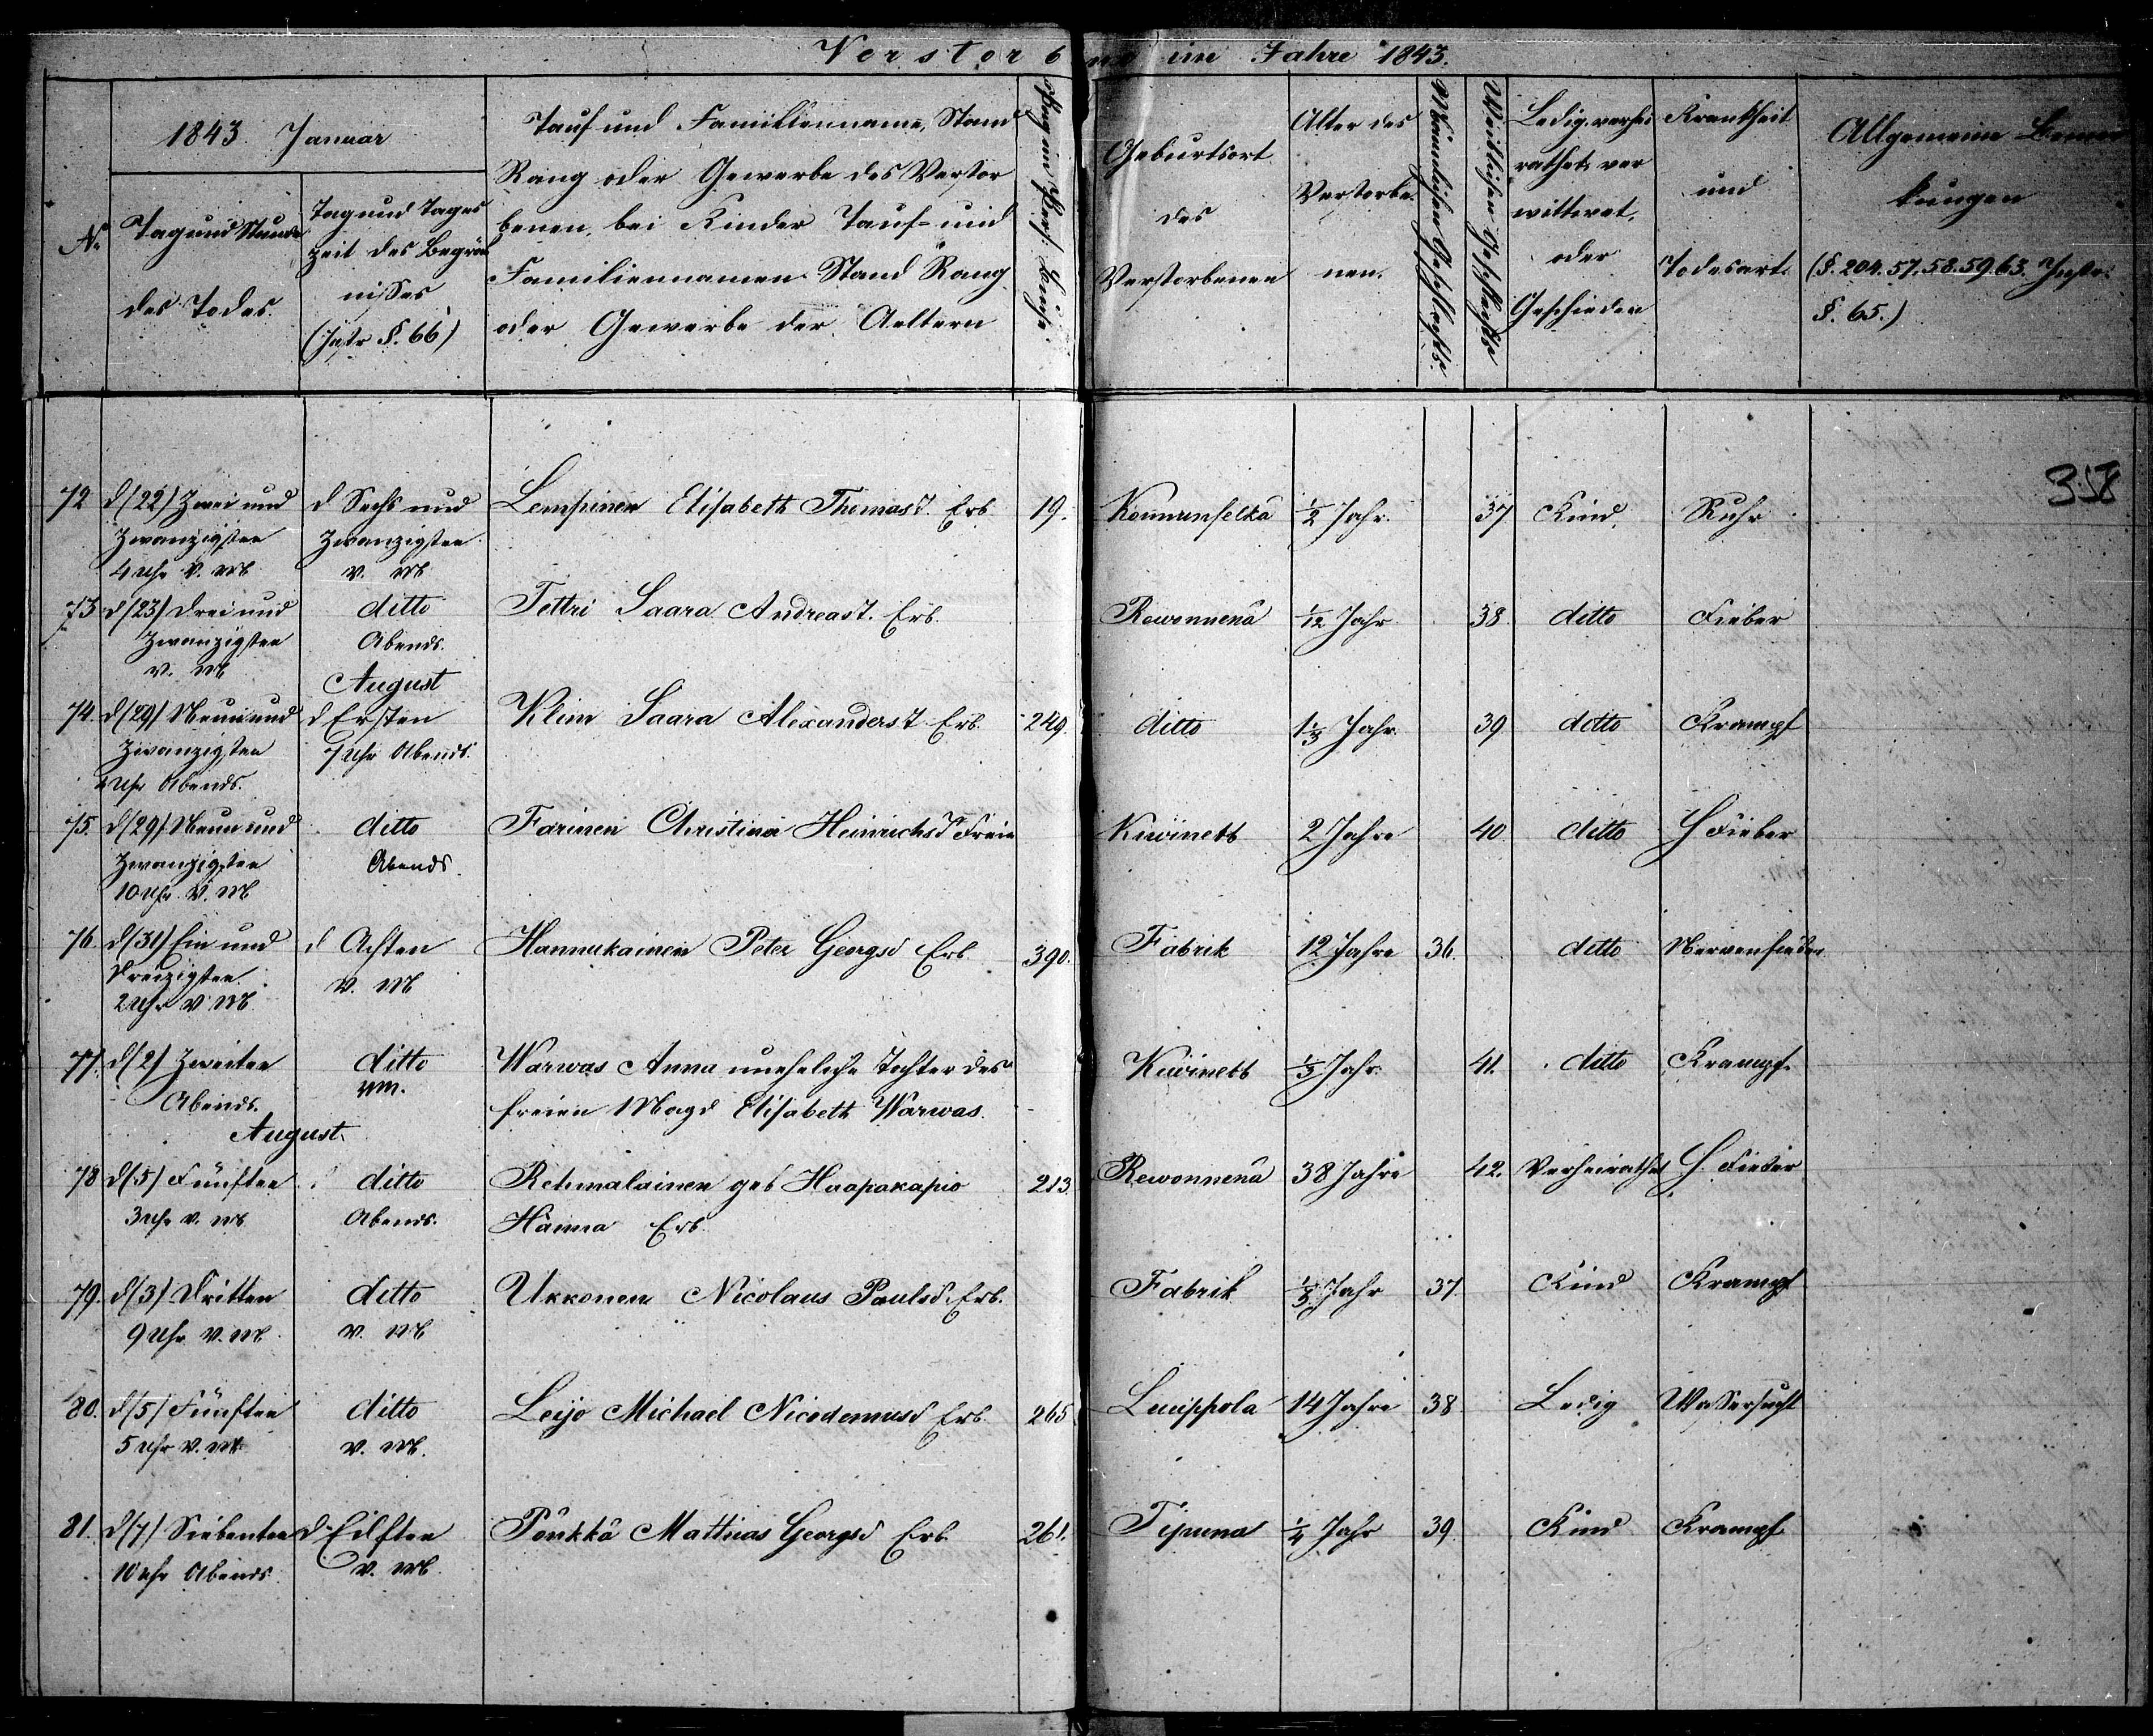 Verstorbne im Jahre 1843.
1843 Januar
No
Tag und Stunde des Todes.
Tag und Tageszeit des Begräbnisses (Instr §. 66)
Tauf und Familienname, Stand
Rang oder Gewerbe des Verstor
benen, bei Kinder Tauf- und
Familiennamen Stand Rang
oder Gewerbe der Aeltern
Geburtsort des Verstorbenen
Alter des Verstorbenen.
Männlichen Geschlechts.
Weiblichen Geschlechts
Ledig, verheirathet, verwittwet, oder Geschieden
Krankheit und Todesart.
Allgemeine Bemerkungen
(§. 204. 57. 58. 59. 63. Instr.
§. 65.)
358
72 d (22) Zwei und Zwanzigsten 4 Uhr V. M. d Sechs und Zwanzigsten V. M. Lempinen Elisabeth Thomast. Erb. 19. ½ Jahr. 37 Kind. Ruhr
73 d (23) Drei und Zwanzigsten V. M. ditto Abends. Tettri Saara Andreast. Erb. Rewonnenä 1/12 Jahr 38 ditto Fieber
August
74. d (29) Neun und Zwanzigsten Uhr Abends. d Ersten 7 Uhr Abends. Klim Saara Alexanderst. Erb. 249. ditto 1⅓ Jahr. 39 ditto Krampf
75. d (29) Neun und Zwanzigsten 10 Uhr V. M. ditto Abends. Farinen Christina Heinrichst. Freie 2 Jahre 40 ditto H Fieber
76. d (31) Ein und Dreizigsten 2 Uhr V. M. d Achten V. M. Hannukainen Peter Georgsd Erb 390. Fabrik 12 Jahre 36. ditto Nervenfieber
77. d (2) Zweiten Abends. ditto VM. Warwas Anna uneheliche Tochter der
freien Magd Elisabeth Warwas. ⅓ Jahr. 41. ditto Krampf.
August.
78 d (5) Fünften 3 Uhr V. M. ditto Abends. Rehmalainen geb Haapakapio
Hanna Erb. 213. Rewonnenä 38 Jahre 42. Verheirathet H. Fieber
79. d (3) Dritten 9 Uhr V. M. ditto V. M. Ukkonen Nicolaus Paulsd. Erb. Fabrik Jahr 37. Kind Krampf
80. d (5) Fünften 5 Uhr V. M. ditto V. M. Leijo Michael Nicodemusd Erb. 265 Luuippola 14 Jahre 38 Ledig Wassersucht
81. d (7) Siebenten 10 Uhr Abends d. Eilften V. M. Pönkkä Mathias Georgsd Erb. 261. ¼ Jahr 39 Kind Krampf